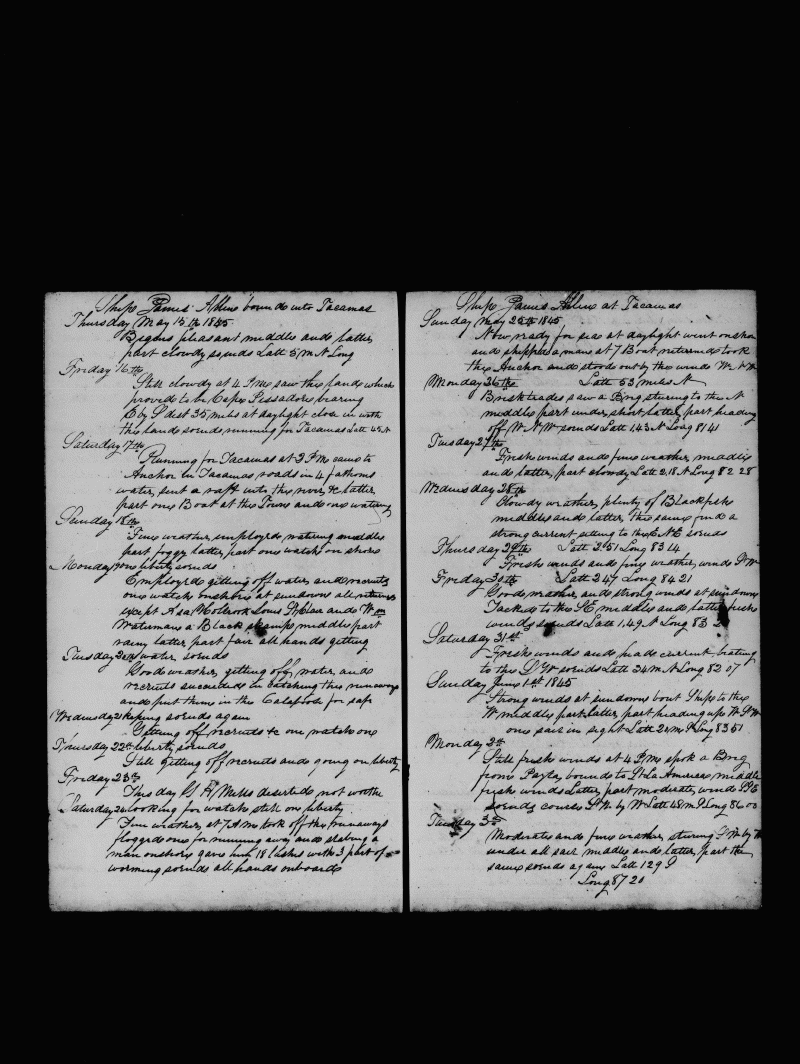 Ship James Allen bound into Tacamas
Thursday May 15th 1845
Begins pleasant middle and latter
part clowdy so ends Latt 5 m N Long
Friday 16th
Still clowdy at 4 PM saw the land which
proved to be Cape Passadore bearing
E by S dist 35 miles at daylight close in with
the land so ends running for Tacamas Latt
Saturday 17th
Running for Tacamas at 3 PM came to
Anchor in Tacamas roads in 4 fathoms
water, sent a raft into the river &c latter
part one Boat at the Town and one watering
Sunday 18th
Fine weather employed watering middle
part foggy latter part one watch on shore
Monday on liberty so ends
Employed getting off water and recruits
one watch onshore at sundown all returned
except Asa Holbrook Louis St and Wm
Waterman a Black middle part
rainy latter part fair all hands getting
Tuesday 20th water so ends
Good weather, getting off water and
recruits succeeded in catching the runaways
and put them in the Calaboose for safe
Wednesday 21 keeping so ends again
Getting off recruits &c one watch on
Thursday 22nd liberty so ends
Still getting off recruits and going on liberty
Friday 23rd
This day G H Mills deserted not worth
Saturday 24 looking for watch still on liberty
Fine weather, at 7 AM took off the runaways
flogged one for running away and stabing a
man onshore gave him 18 lashes with 3 part of
worming so ends all hands onboard
Ship James Allen at Tacamas
Sunday May 25th 1845
Now ready for sea at daylight went onshore
and shipped a man at 7 Boat returned took
the Anchor and stood out by the wind W N W
Monday 26th Latt 53 miles N
Brisk trades saw a Brig stearing to the N
middle part under short, latter part heading
off W N W so ends Latt 1.43 N Long 81 41
Tuesday 27th
Fresh winds and fine weather middle
and latter, part clowdy Latt 2.18 N Long 82 28
Wednesday 28th
Clowdy weather, plenty of Blackfish
middle and latter, the same find a
strong current setting to the ENE so ends
Thursday 29th Latt 2.51 Long 83 14
Fresh winds and fine weather, winds S W
Friday 30th Latt 2 47 Long 84 21
Good weather and strong winds at sundown
Tacked to the SE middle and latter fresh
winds so ends Latt 1.49 N Long 83
Saturday 31st
Fresh winds and head current, beating
to the SW so ends Latt 24 m N Long 82 07
Sunday June 1st 1845
Strong winds at sundown bout Ship to the
W middle part latter part heading up W S W
one sail in sight Latt S Long 83 51
Monday 2nd
Still fresh winds at 4 PM spok a Brig
from Payta bound to St La America middle
fresh winds latter, part moderate, winds S S E
so ends course S W by W Latt 48 m S Long 86 00
Tuesday 3rd
Moderate and fine weather, stearing S W by W
under all sail middle and latter, part the
same so ends again Latt 1 29 S
Long 87 20